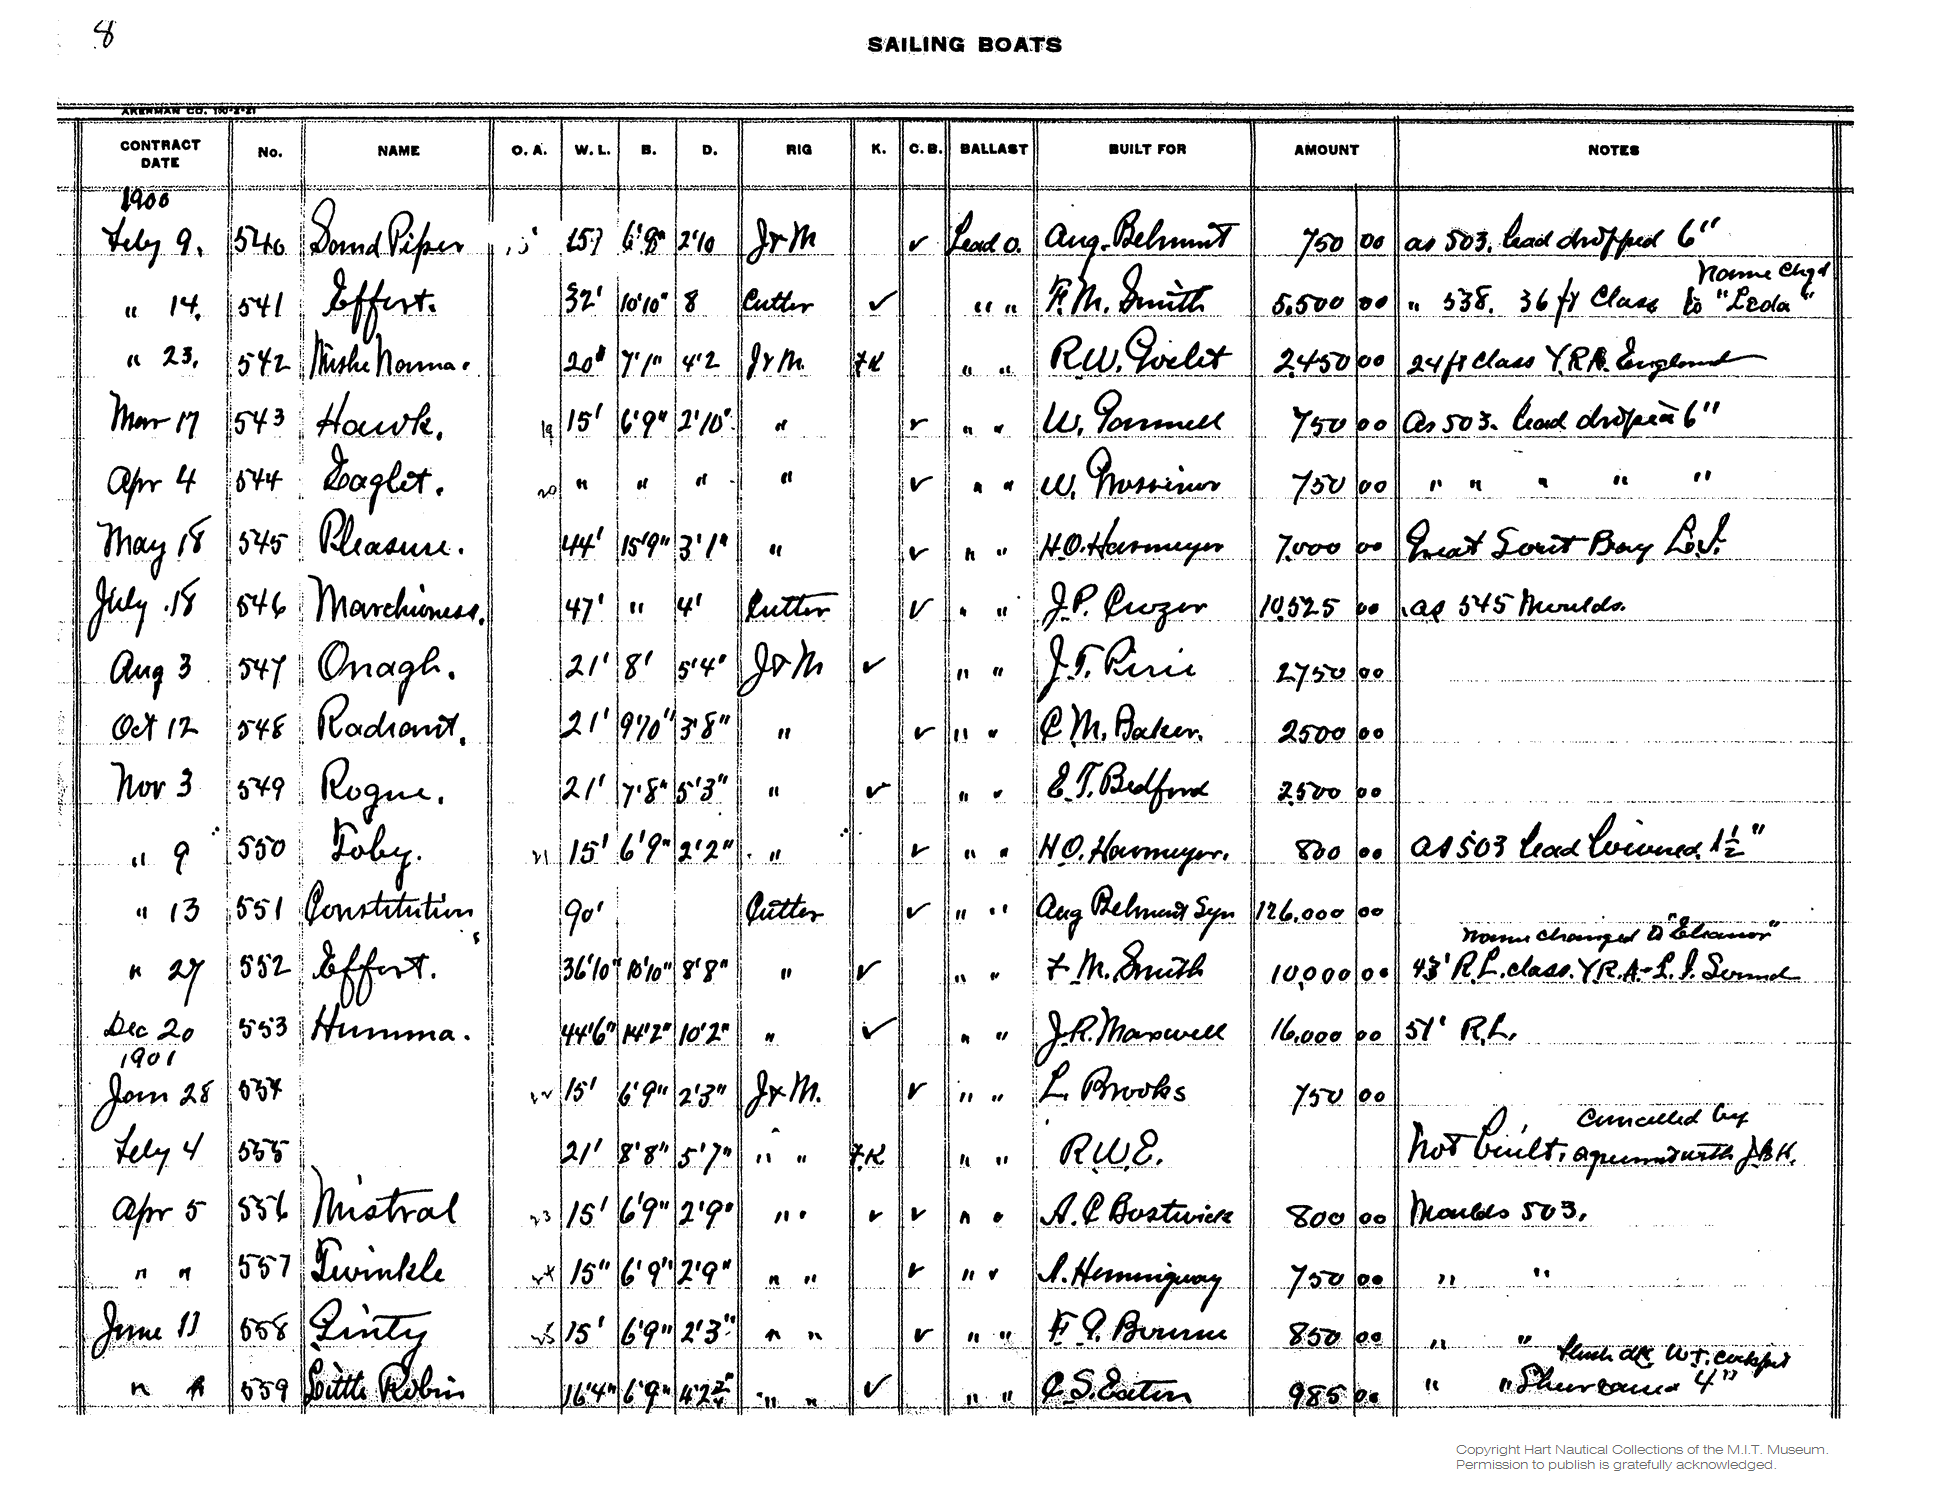 8
SAILING BOATS
AKERMAN CO.
CONTRACT DATE No. NAME O. A. W. L. B. D. RIG K. C. B. BALLAST BUILT FOR AMOUNT NOTES
1900
Feby 9. 540 Sand Piper 15' 6'9" 2'10 J & M ✓ Lead o. Aug. Belmont 750 00 as 503. lead dropped 6"
Name Chgd
" 14. 541 Effort. 32' 10'10" 8 Cutter ✓ " " F. M. Smith 5,500 00 " 538. 36 ft Class to "Leda"
" 23. 542 Mishe Nonna. 20' 7'1" 4'2 J & M. F K " " R. W. Goelet 2,450 00 24 ft class Y.R.A. England
Mar 17 543 Hawk. 19 15' 6'9" 2'10" " ✓ " " W. Gammell 750 00 As 503. lead droped 6"
Apr 4 544 Eaglet. 20 " " " " ✓ " " W. 750 00 " " " " "
May 18 545 Pleasure. 44' 15'9" 3'1" " ✓ " " H. O. Havmeyer 7,000 00 Great Bay L. I.
July 18 546 Marchioness. 47' " 4' Cutter ✓ " " J. P. Crozer 10,525 00 as 545 Moulds.
Aug 3 547 Onagh. 21' 8' 5'4" J & M ✓ " " J. T. Pirie 2750 00
Oct 12 548 Radiant. 21' 9'10" 3'8" " ✓ " " C. M. Baker. 2500 00
Nov 3 549 Rogue. 21' 7'8" 5'3" " ✓ " " E. T. Bedford 2,500 00
" 9 550 Toby. 21 15' 6'9" 2'2" " ✓ " " H. O. Havmeyer. 800 00 as 503 lead lowered 1½"
" 13 551 Constitution 90' Cutter ✓ " " Aug Belmont Syn 126,000 00
Name changed to "Eleanor"
" 27 552 Effort. 36'10" 10'10" 8'8" " ✓ " " F. M. Smith 10,000 00 43' R. L. class. Y.R.A. - L. I. Sound
Dec 20 553 Humma. 44'6" 14'2" 10'2" " ✓ " " J. R. Maxwell 16,000 00 51' R. L.
1901
Jan 28 554 22 15' 6'9" 2'3" J & M. ✓ " " L. Brooks 750 00
Cancelled by
Feby 4 555 21' 8'8" 5'7" " " F. K " " R. W. E. Not built. agreement with J.B.H.
Apr 5 556 Mistral 23 15' 6'9" 2'9" " " ✓ ✓ " " A. C. Bostwick 800 00 Moulds 503.
" " 557 Twinkle 24 15" 6'9" 2'9" " " ✓ " " A. Hemingway 750 00 " "
June 11 558 25 15' 6'9" 2'3" " " ✓ " " F. G. Bourne 850 00 " "
flush dk W.T. cockpit
" " 559 Little Robin 16'4" 6'9" " " ✓ " " C. S. Eaton 985 00 " " Sheer raised 4"
Copyright Hart Nautical Collections of the M.I.T. Museum.
Permission to publish is gratefully acknowledged.